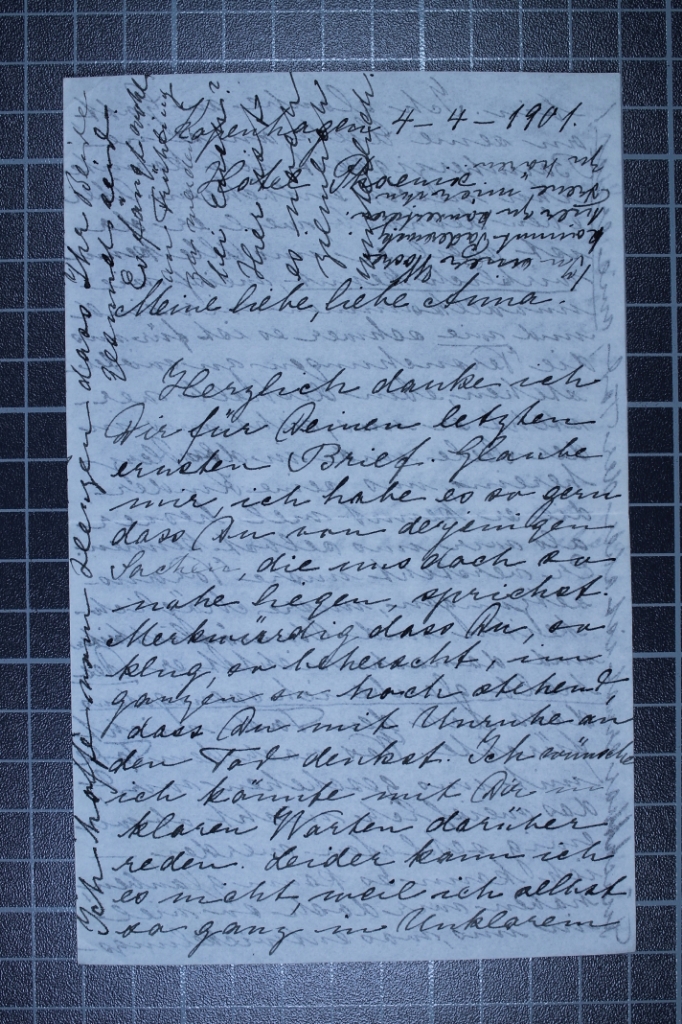 Kopenhagen 4-4-1901.
Hotel Phoenix
Meine liebe, liebe Anna.
Herzlich danke ich
Dir für Deinen letzten
ernsten Brief. Glaube
mir, ich habe es so gern
dass Du von derjenigen
Sachen, die uns doch so
nahe liegen, sprichst.
Merkwürdig dass Du, so
klug, so beherscht, im
ganzen so hoch stehend,
dass Du mit Unruhe an
den Tod denkst. Ich wünsche
ich könnte mit Dir in
klaren Worten darüber
reden. Leider kann ich
es nicht, weil ich selbst
so ganz in Unklarem
Ich hoffe von Herzen dass Ihr Beide
Hier ist
es noch
ziemlich
In einer Woche
kommt Paderewski
hier zu konzertiren.
Freue mich ihn
zu hören.